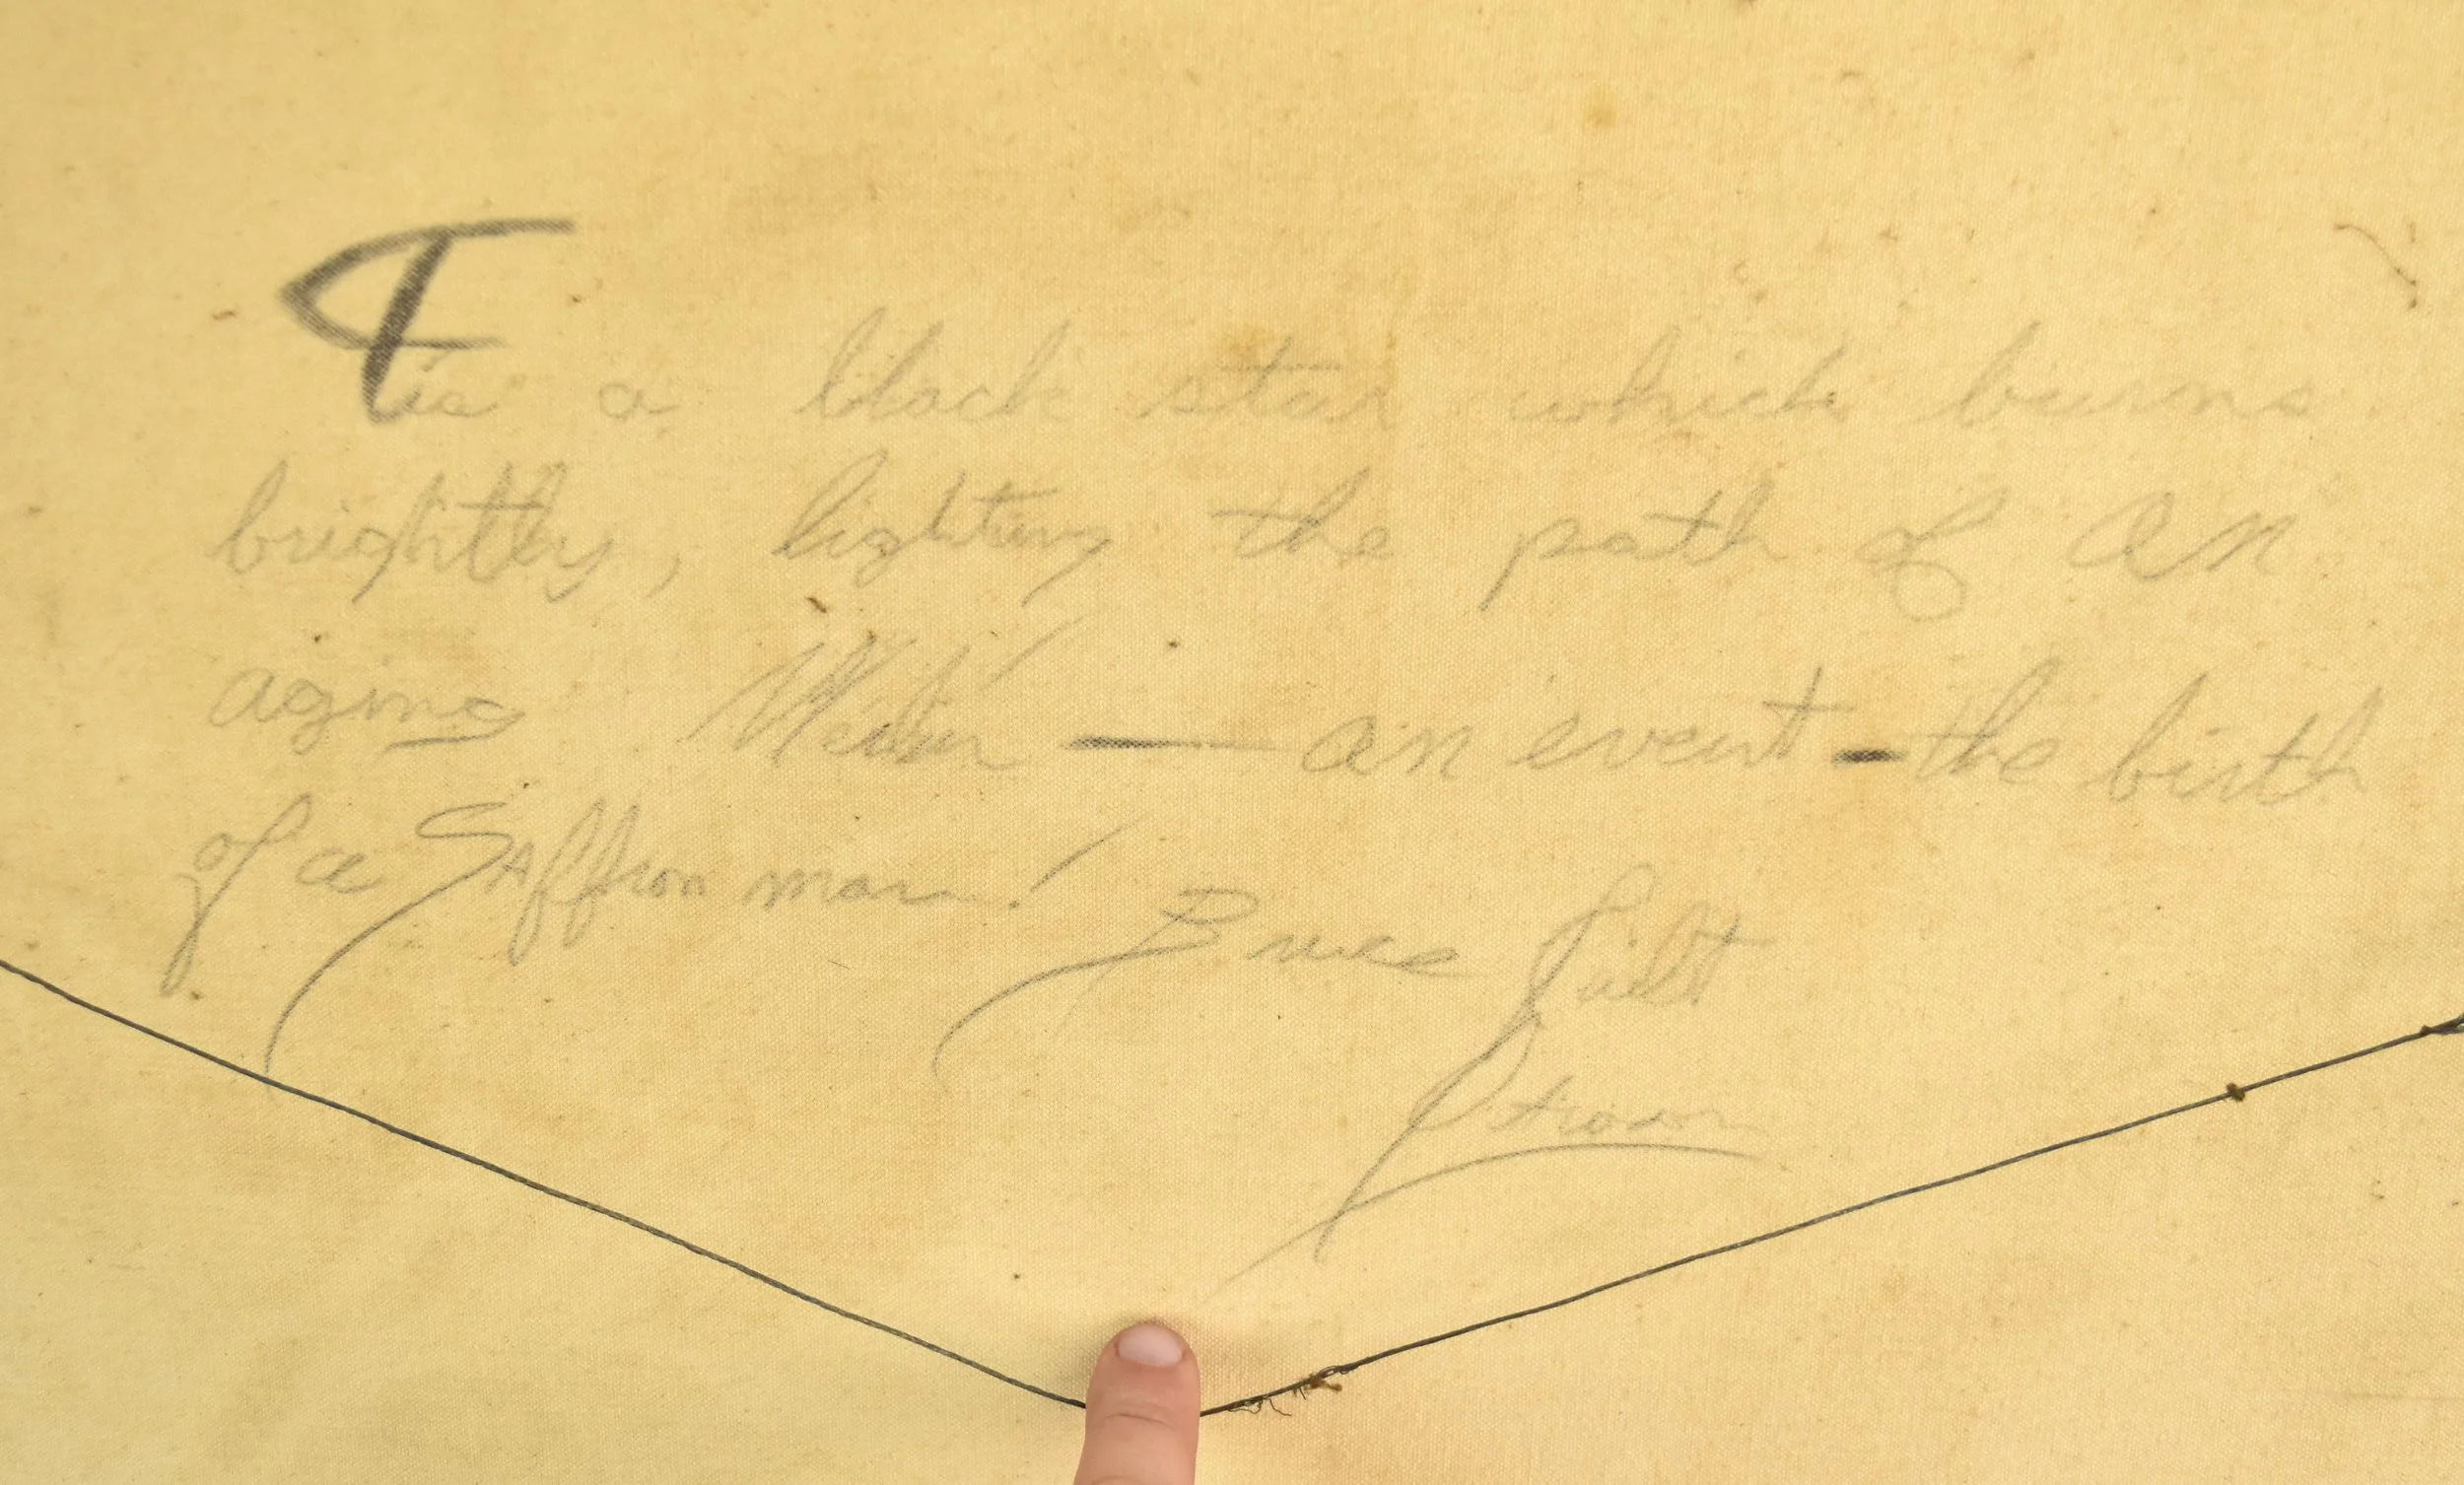 Tis a black star which burns
brightly, lighting the path of an
aging — an event — the birth
of a Saffron man!
Bruce